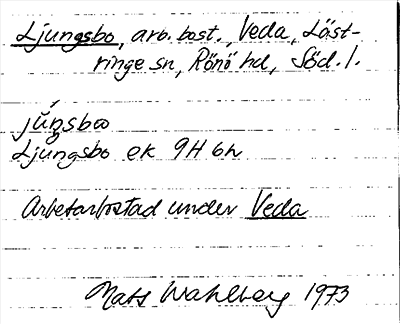 Ljungsbo, arb. bost., Veda, Läst-
ringe sn, Rönö hd, Söd. l.
júŋsboo
Ljungsbo ek 9H 6h
Arbetarbostad under Veda
Mats Wahlberg 1973